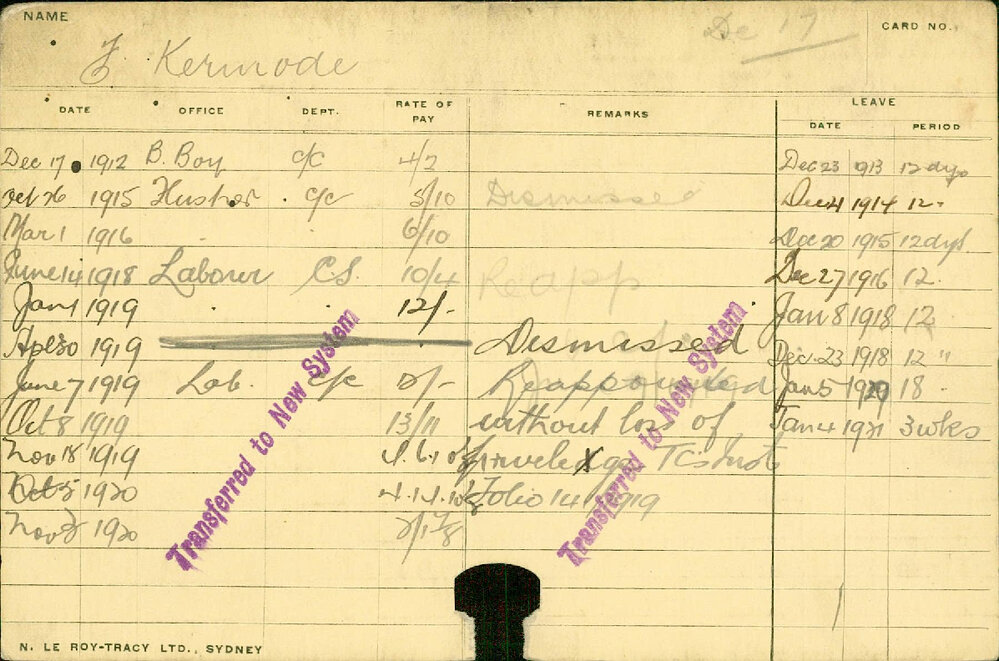 NAME
CARD NO.
De 17
F Kermode
DATE OFFICE DEPT. RATE OF PAY REMARKS LEAVE
DATE PERIOD
Dec 17 1912 B. Boy c/c 4/2 Dec 23 1913 12 dys
Oct 26 1915 c/c 5/10 Dismissed Dec 4 1914 12
Mar 1 1916 6/10 Dec 20 1915 12 dys
June 14 1918 Labourer C.S. 10/4 Reapp Dec 27 1916 12
Jan 1 1919 12/- Jan 8 1918 12
Apl 30 1919 Dismissed Dec. 23 1918 12 "
June 7 1919 Lab. c/c Reappointed Jan 5 18
Oct 8 1919 13/11 without loss of Jan 4 1921 3 wks
Nov 18 1919
Oct 5 1920 Folio 141/1919
Nov 1920
Transferred to New System
Transferred to New System
N. LE ROY-TRACY LTD., SYDNEY